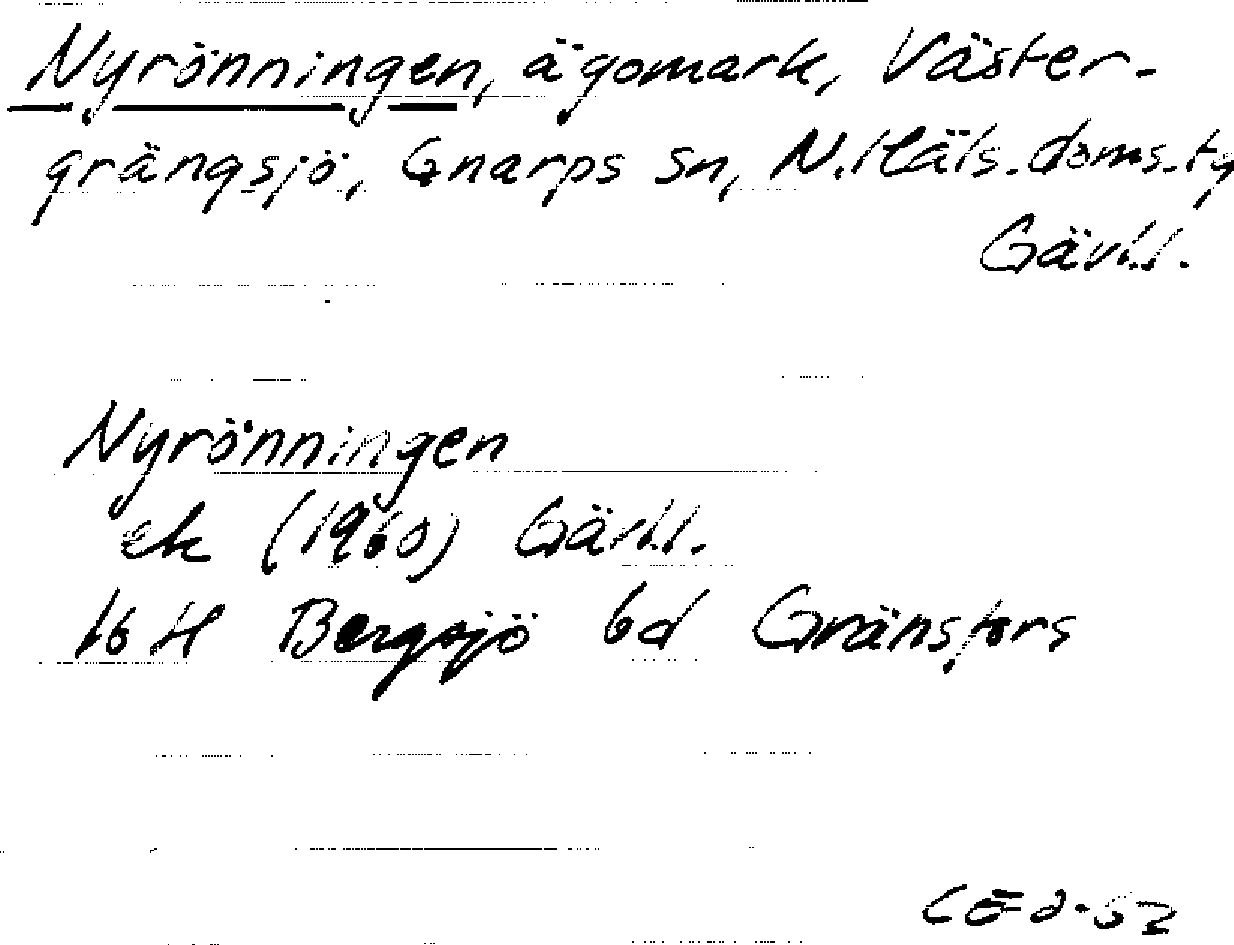 Nyrönningen, ägomark, Väster-
grängsjö, Gnarps sn, N.Häls.doms.tg
Gävl.l.
Nyrönningen
ek (1960) Gävl.l.
16 H Bergsjö 6d Gränsfors